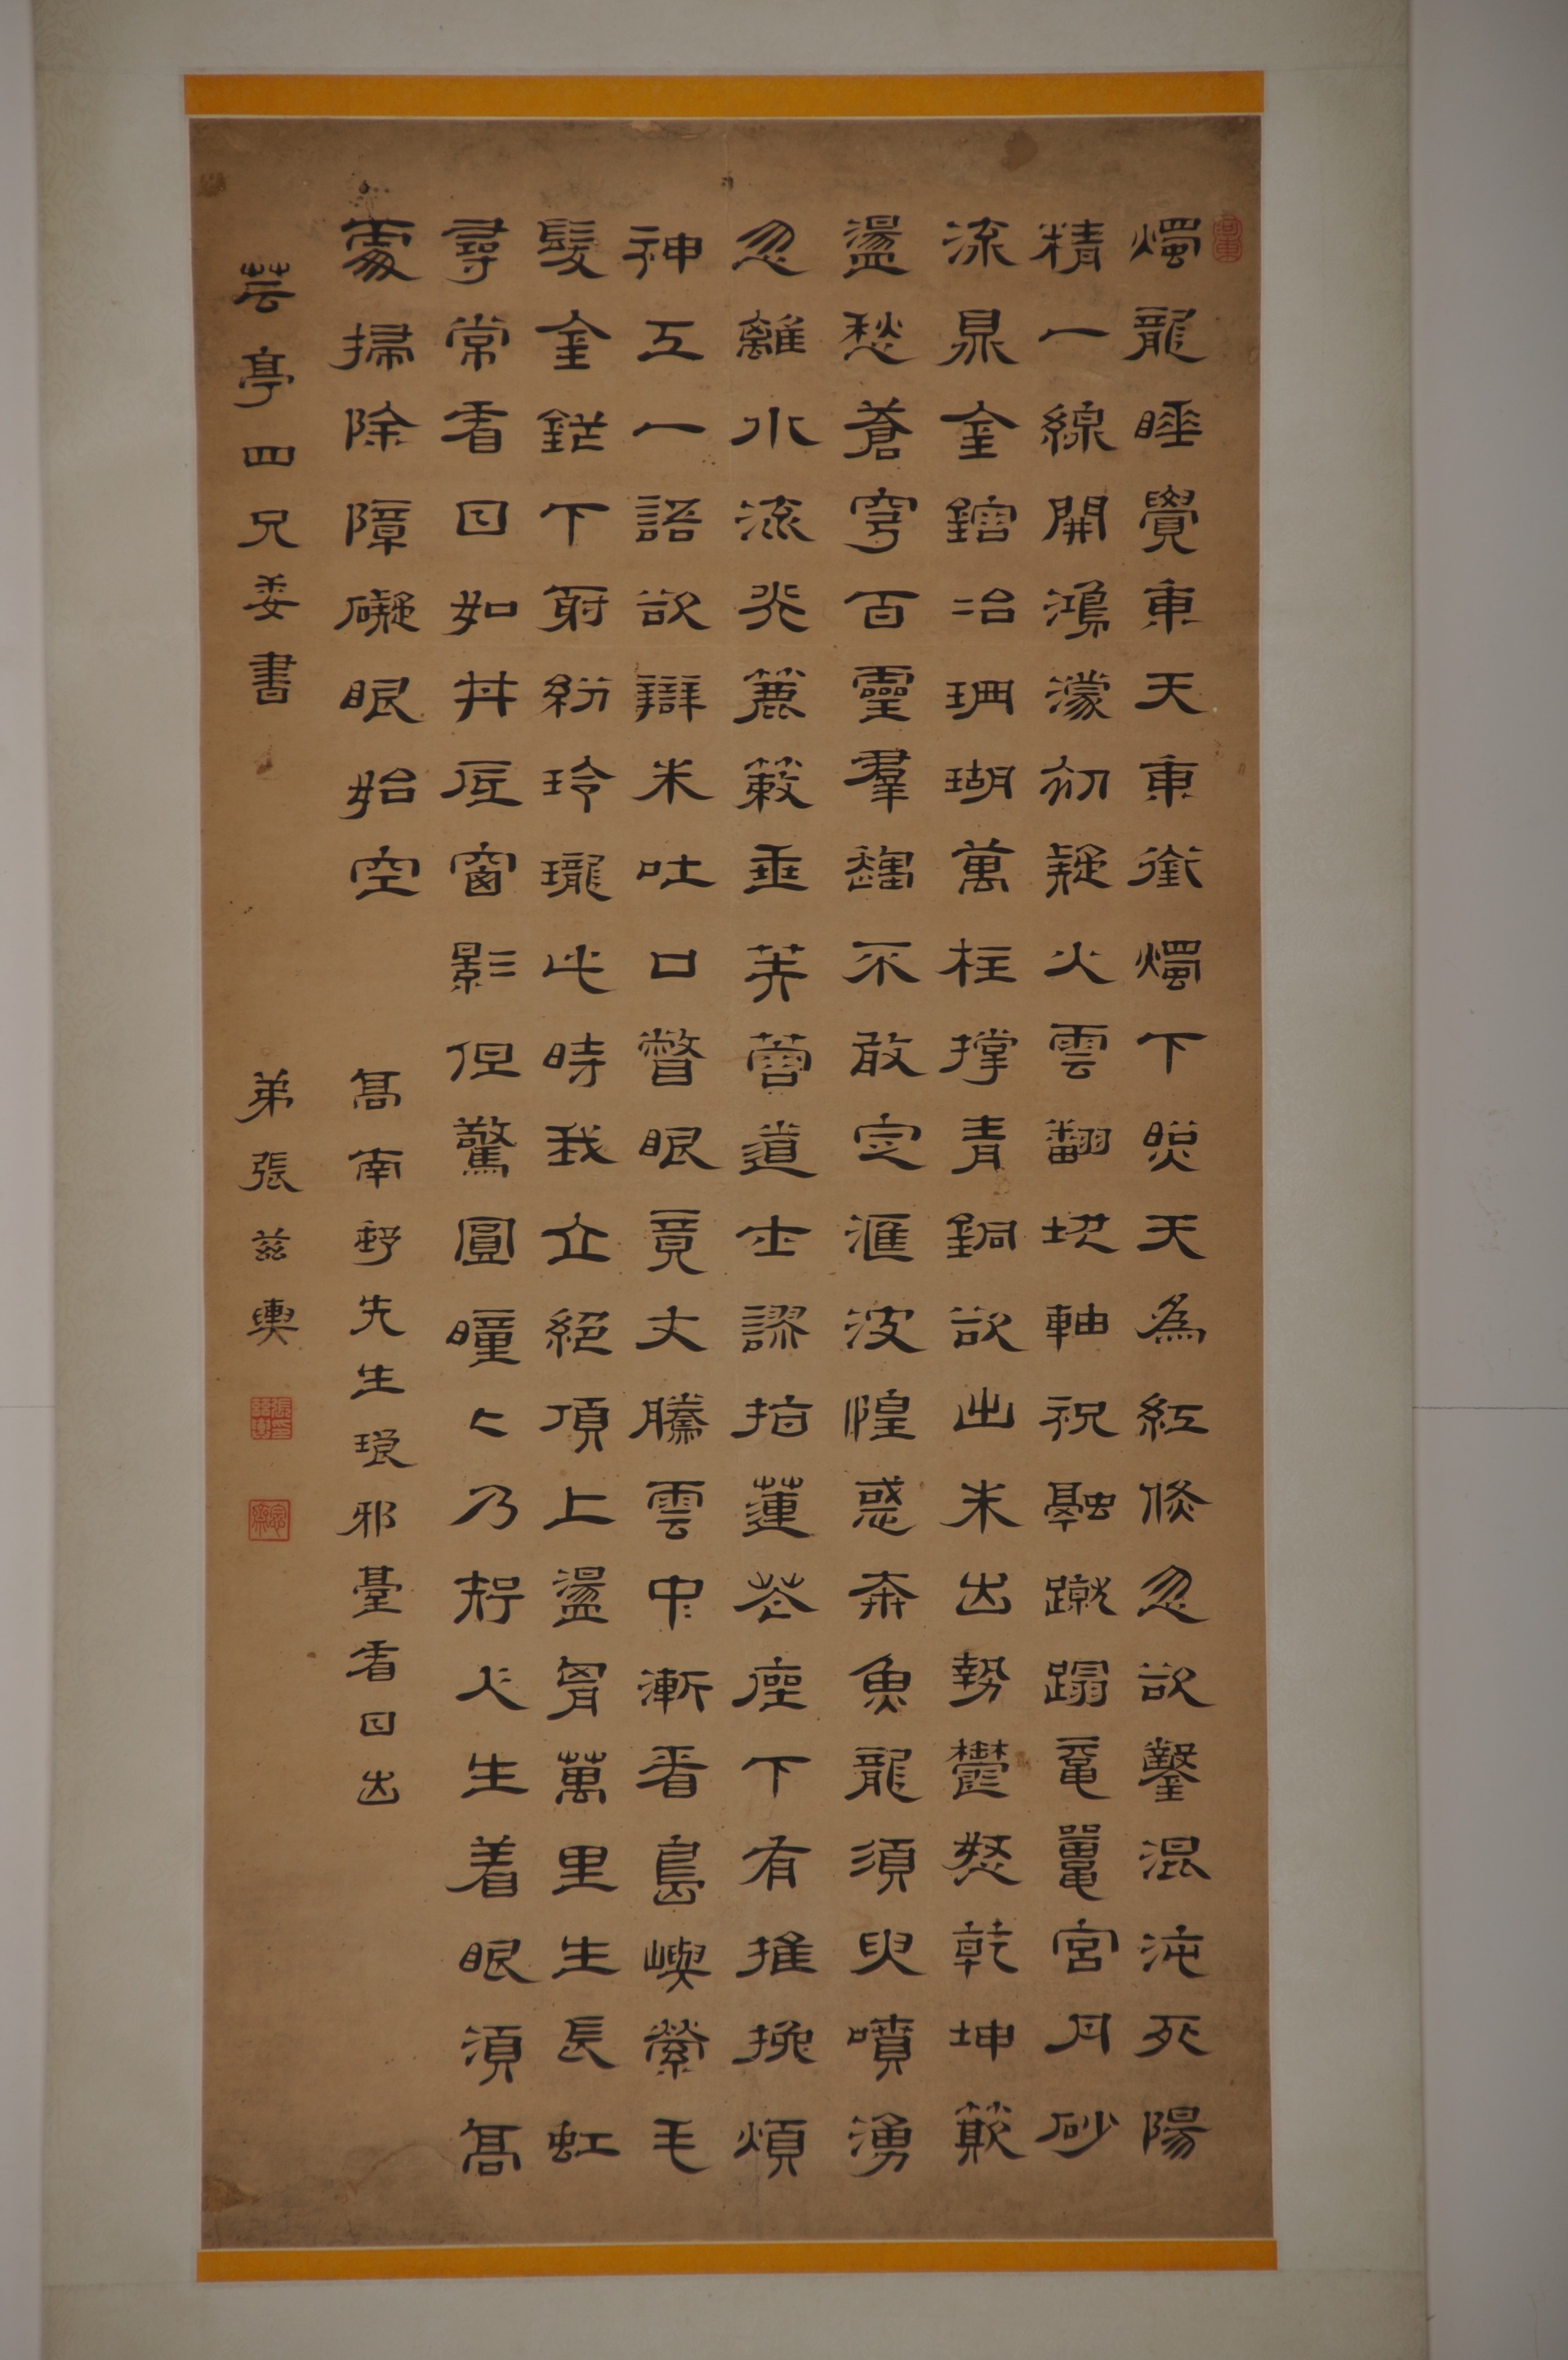 燭龍睡覺東天東銜燭下照天為紅倏忽欲鑿混沌死陽
精一線開鴻濛初疑火雲翻坱軸祝融蹴蹋黿鼉宮丹砂
流鼎金鎔冶珊瑚萬柱撑青銅欲出未出勢鬱怒乾坤簸
盪愁蒼穹百靈羣 不敢定滙波惶惑奔魚龍須臾噴湧
忽離水流光簏簌垂芙蓉道士謬指蓮花座下有推挽煩
神工一語欲辯未吐口瞥眼竟丈騰雲中漸看島嶼縈毛
髮金鋩下射紛玲瓏此時我立絕頂上盪胷萬里生長虹
尋常看日如井底窗影但驚圓曈〻乃 人生着眼須高
處掃除障礙眼始空
高南邨先生琅邪臺看日出
芸亭四兄委書
弟張兹輿